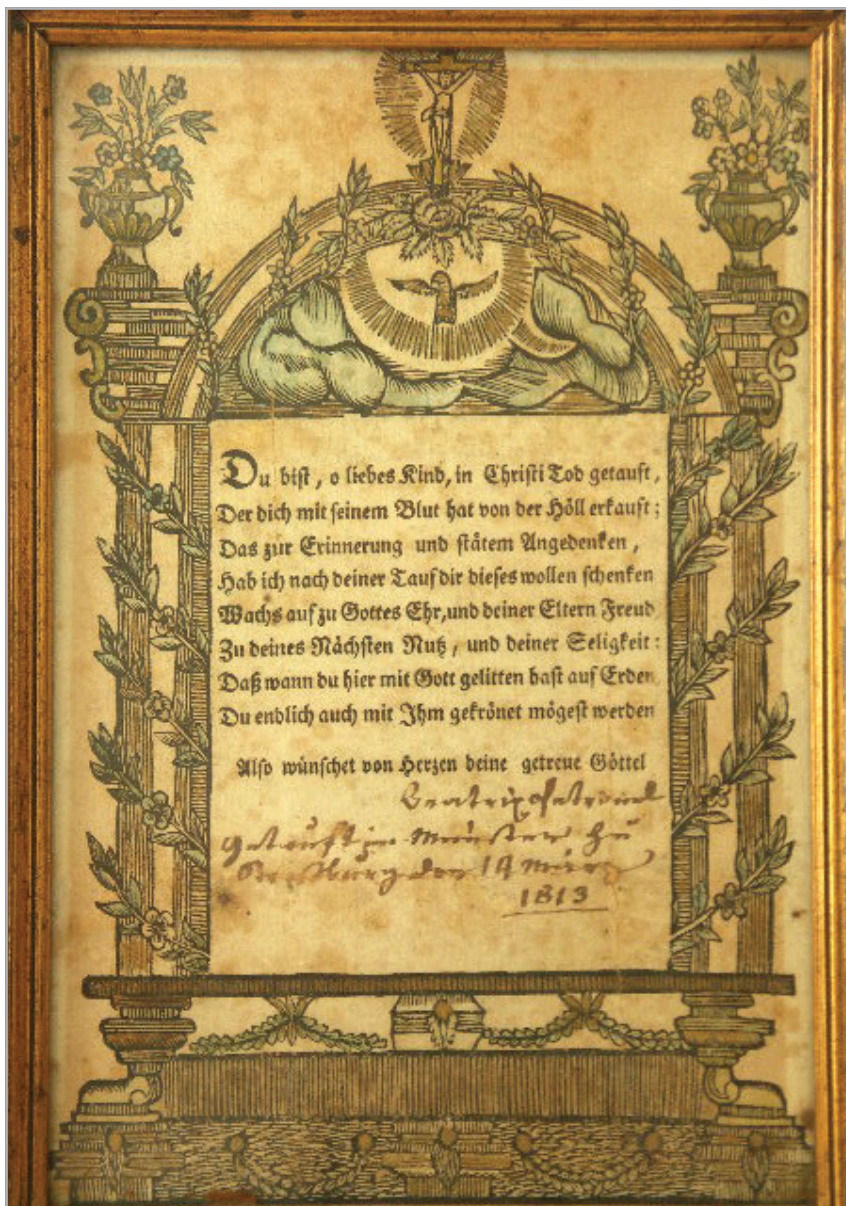 Du bist, o liebes Kind, in Christi Tod getauft,
Der dich mit seinem Blut hat von der Höll erkauft;
Das zur Erinnerung und stätem Angedenken,
Hab ich nach deiner Tauf dir dieses wollen schenken
Wachs auf zu Gottes Ehr, und deiner Eltern Freud
Zu deines Nächsten Nutz, und deiner Seligkeit:
Daß wann du hier mit Gott gelitten hast auf Erden
Du endlich auch mit Ihm gekrönet mögest werden
Also wünschet von Herzen deine getreue Göttel
Beatrix
getauft im Münster zu
Straßburg den 19 März
1813